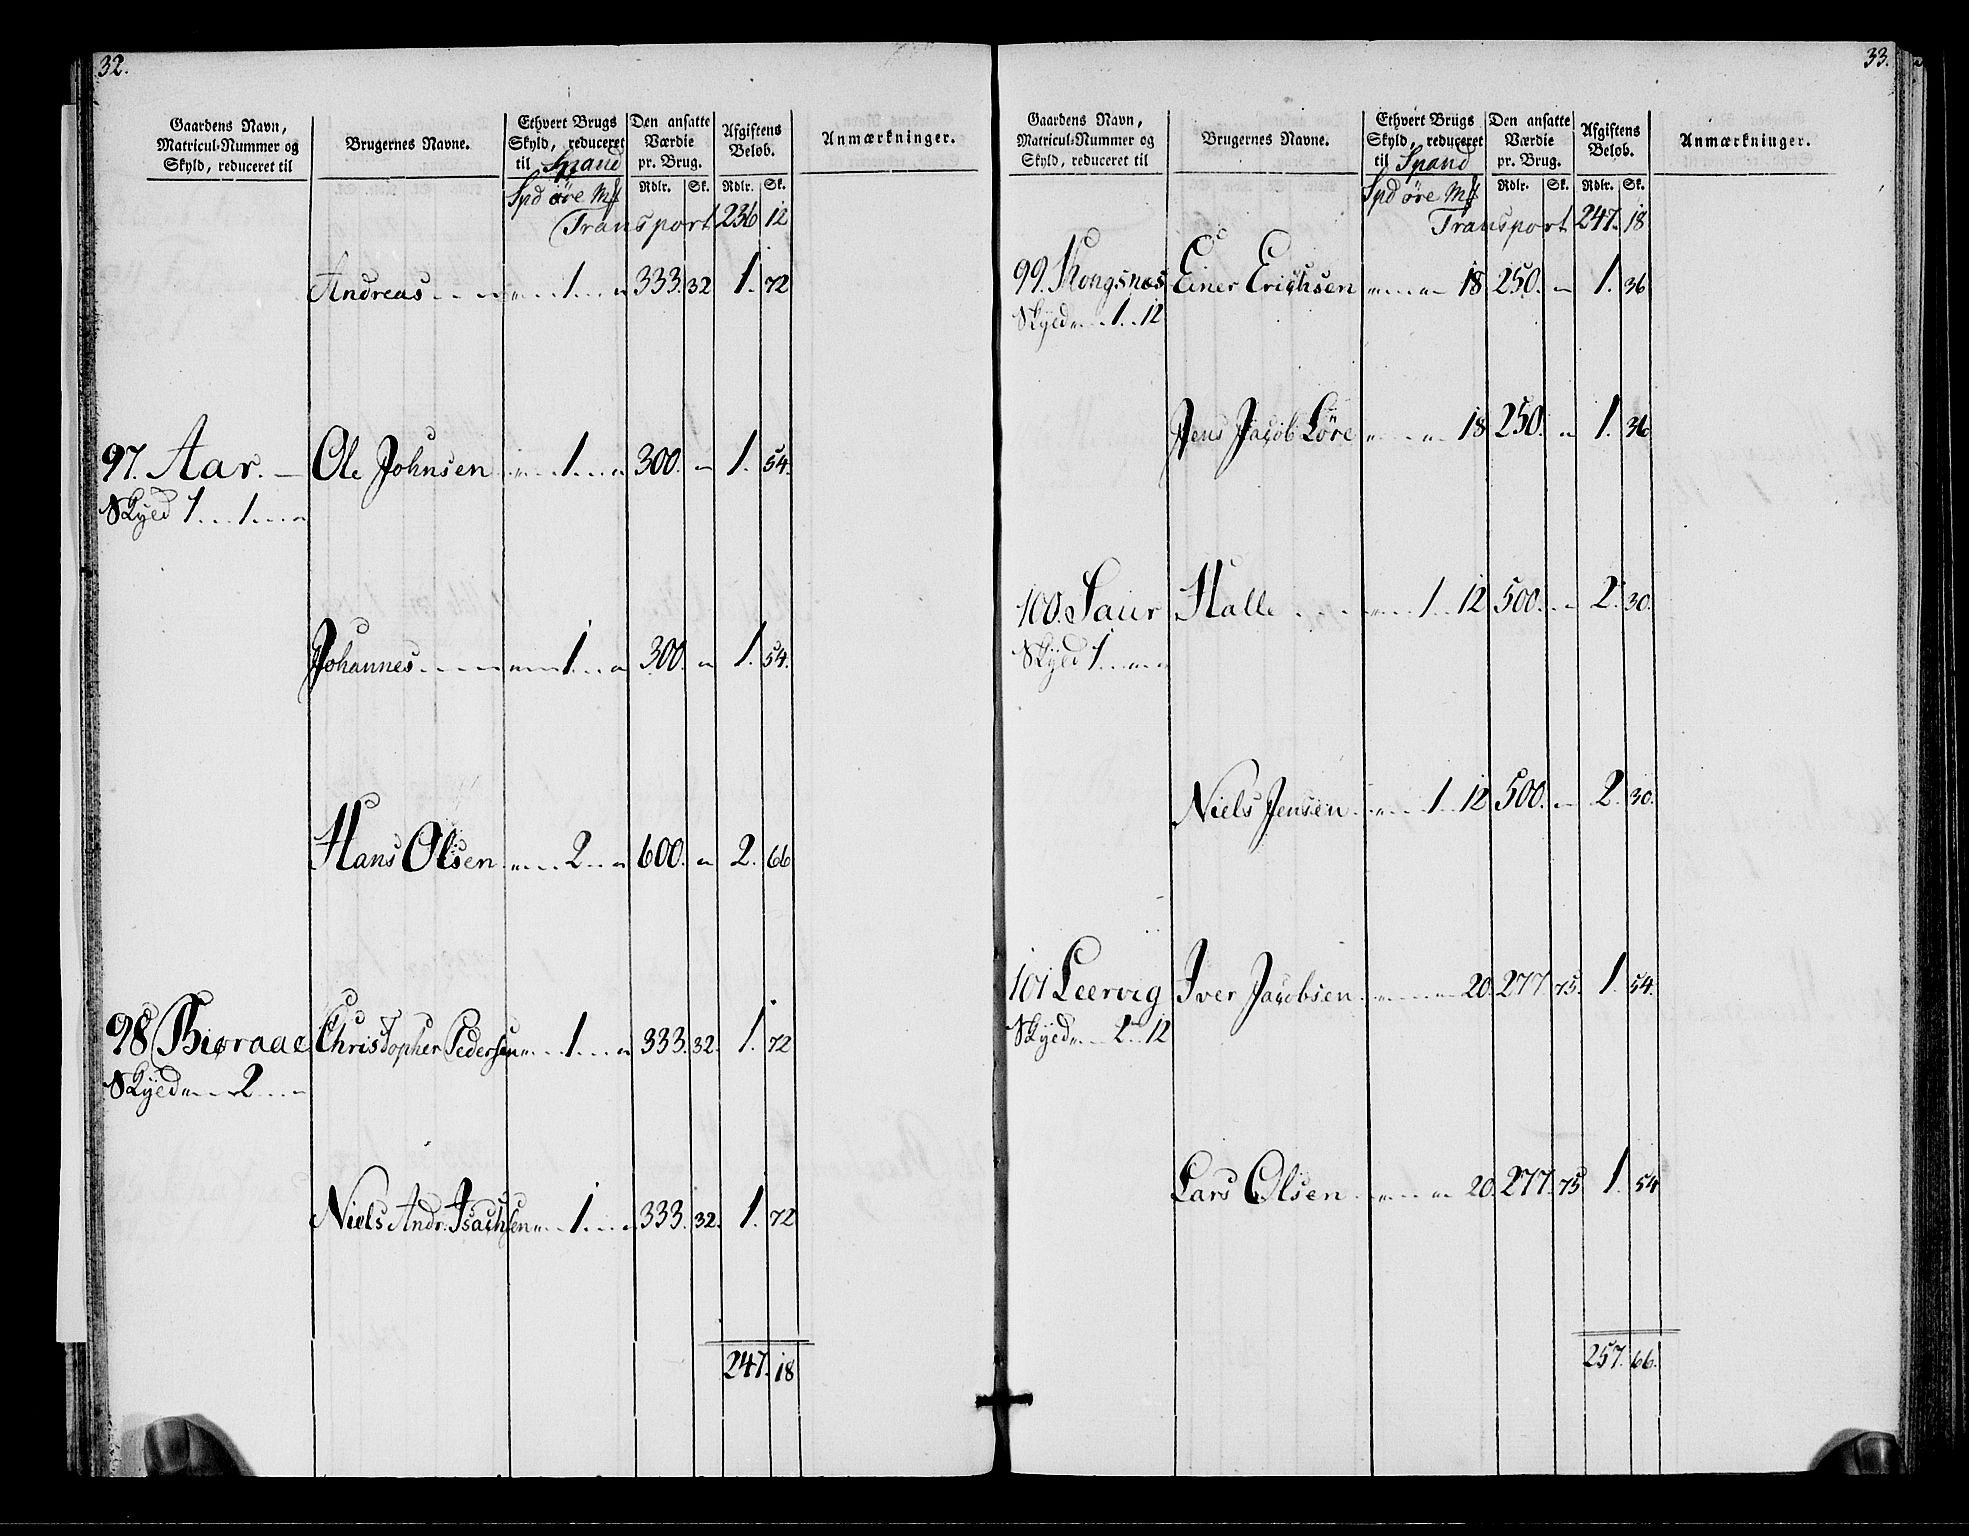 32.
Gaardens Navn, Matricul-Nummer og Skyld, reduceret til | Brugernes Navne. | Ethvert Brugs Skyld, reduceret til Spand | Den ansatte Værdie pr. Brug. | Afgiftens Beløb. | Anmærkninger.
Spd øre Mk | Rdlr. | Sk. | Rdlr. | Sk.
Transport 236 12
Andreas 1 333. 32 1. 72
97. Aar. Ole Johnsen 1 300. 1. 54.
Skyld 1 1
Johannes 1 300. 1. 54.
Hans Olsen 2 600. 2. 66
98 Biøraae Christopher Pedersen 1 333. 32. 1. 72
Skyld 2
Niels Andr. Isachsen 1 333. 32. 1. 72
247. 18
33.
Gaardens Navn, Matricul-Nummer og Skyld, reduceret til | Brugernes Navne. | Ethvert Brugs Skyld, reduceret til Spand | Den ansatte Værdie pr. Brug. | Afgiftens Beløb. | Anmærkninger.
Spd øre Mk | Rdlr. | Sk. | Rdlr. | Sk.
Transport 247. 18
99. Kongsnæs Einer Erichsen 18 250. 1. 36
Skyld 1 12
Jens Jacob Løre 18 250. 1. 36
100. Saur Halle 1 12 500. 2. 30.
Skyld 1
Niels Jensen 1 12 500. 2. 30.
101 Leervig Iver Jacobsen 20. 277 75. 1. 54.
Skyld 2 12
Lars Olsen 20. 277. 75 1. 54
257. 66.